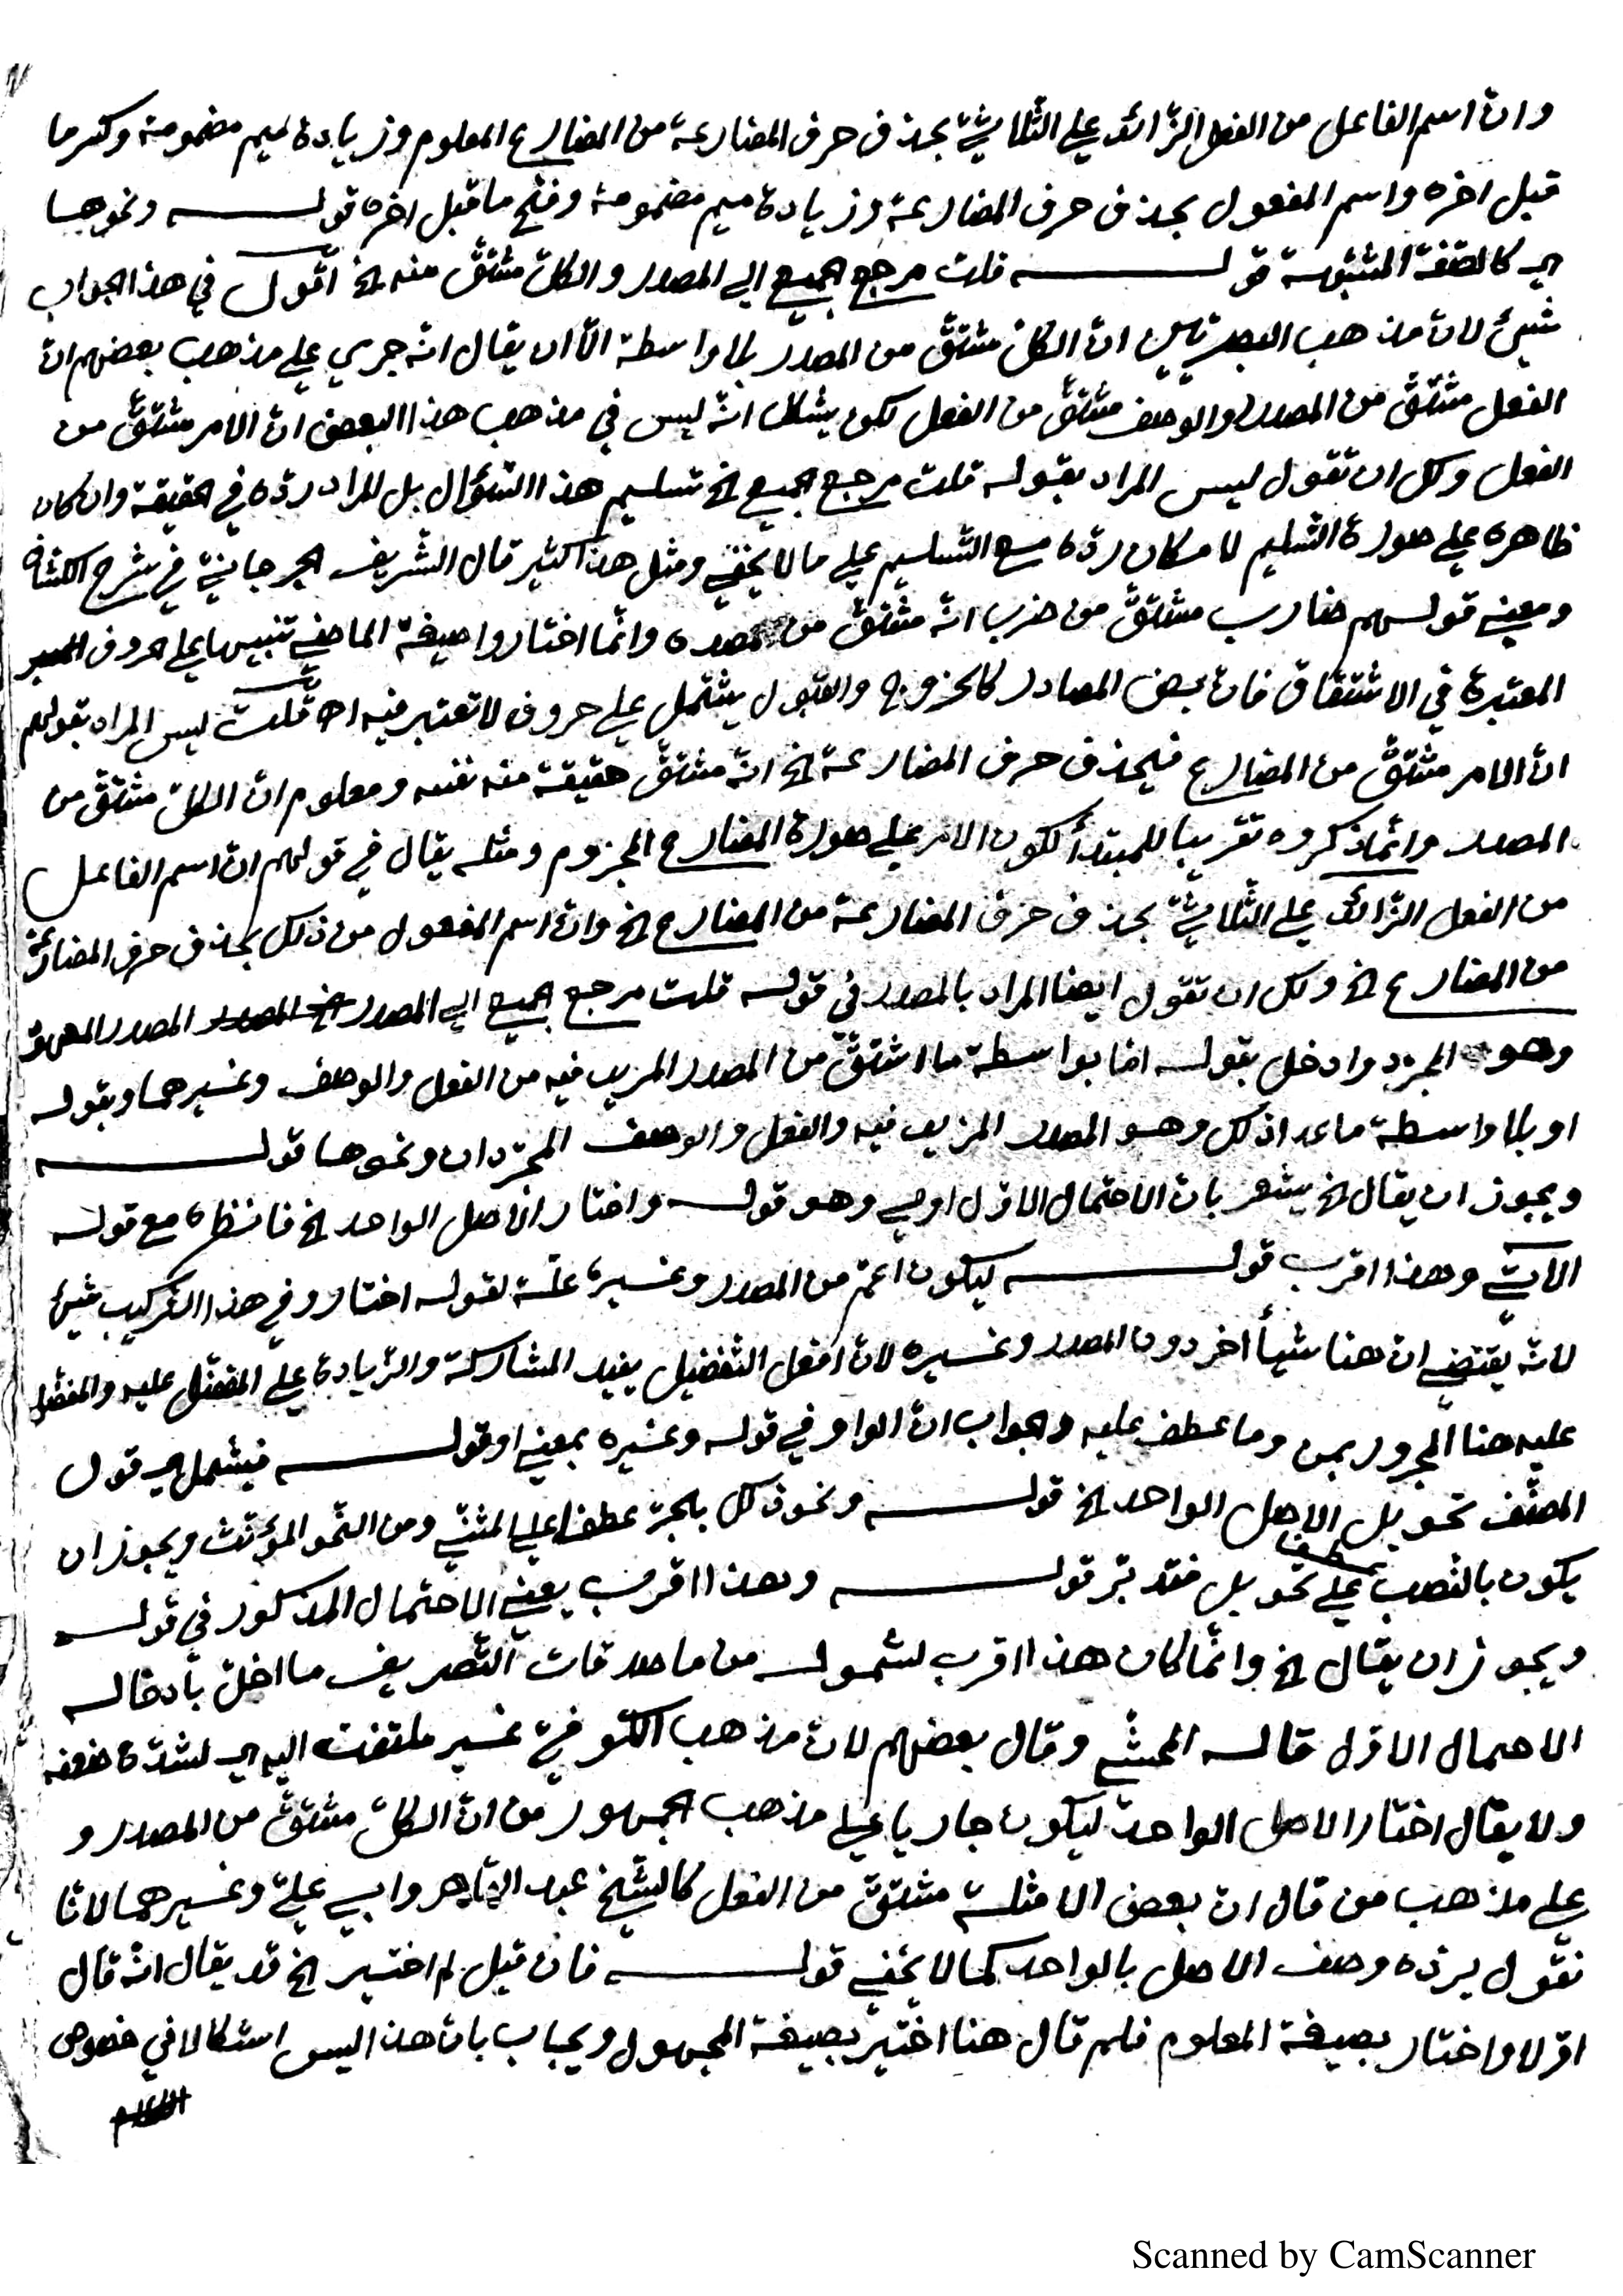 وان اسم الفاعل من الفعل الزائد على الثلاثيّ بحذف حرف المضارعة من المضارع المعلوم وزيادة ميم مضمومة وكسر ما
قبل اخره واسم المفعول بحذف حرف المضارعة وزيادة ميم مضمومة وفتح ما قبل اخره قولـــه ونحوهما
اي كالصّفة المشبّهة قولـــه قلت مرجع الجميع الى المصدر والكلّ مشتقّ منه الخ اقول في هذا الجواب
شيئ لان مذهب البصريّين انّ الكلّ مشتقّ من المصدر بلا واسطة الّا ان يقال انّه جرى على مذهب بعضهم انّ
الفعل مشتقّ من المصدر والوصف مشتقّ من الفعل لكن يشكل انّه ليس في مذهب هذا البعض انّ الامر مشتقّ من
الفعل ولك ان تقول ليس المراد بقوله قلت مرجع الجميع الخ تسليم هذا السّؤال بل المراد ردّه في الحقيقة وان كان
ظاهره على صورة التّسليم لامكان ردّه مع التّسليم على ما لا يخفى ومثل هذا كثير قال الشّريف الجرجانيّ في شرح الكشّاف
ومعنى قولهم ضارب مشتقّ من ضرب انّه مشتقّ من مصدره وانّما اختاروا صيغة الماضي تنبيها على الحروف
المعتبرة في الاشتقاق فان بعض المصادر كالخروج والقبول يشتمل على حروف لا تعتبر فيه اه قلت ليس المراد بقولهم
انّ الامر مشتقّ من المضارع فيحذف حرف المضارعة الخ انّه مشتقّ حقيقة منه نفسه ومعلوم انّ الكلّ مشتقّ من
المصدر وانّما ذكروه تقريبا للمبتدأ لكون الامر على صورة المضارع المجزوم ومثله يقال في قولهم ان اسم الفاعل
من الفعل الزّائد على الثّلاثيّ بحذف حرف المضارعة من المضارع الخ وانّ اسم المفعول من ذلك بحذف حرف المضارعة
من المضارع الخ ولك ان تقول ايضا المراد بالمصدر في قوله قلت مرجع الجميع الى المصدر الخ المصدر المصدر
وهو المجرّد وادخل بقوله امّا بواسطة ما اشتقّ من المصدر المزيد فيه من الفعل والوصف وغيرهما وبقوله
او بلا واسطة ما عدا ذلك وهو المصدر المزيد فيه والفعل والوصف المجرّدان ونحوها قولـــه
ويجوز ان يقال الخ يشعر بان الاحتمال الاوّل اولى وهو قولـــه واختار الاصل الواحد الخ فانظره مع قوله
الآتي وهذا اقرب قولـــه ليكون اعمّ من المصدر وغيره علّة لقوله اختار وفي هذا التركيب شيئ
لانّه يقتضي ان هنا شيأ اخر دون المصدر وغيره لانّ افعل التّفضيل يفيد المشاركة والزّيادة على المفضّل عليه والمفضّل
عليه هنا المجرور بمن وما عطف عليه والجواب انّ الواو في قوله وغيره بمعنى او قولـــه فيشمل اي قول
المصنّف تحويل الاصل الواحد الخ قولـــه ونحو ذلك بالجرّ عطفا على المثنّى ومن النّحو المؤنّث ويجوز ان
يكون بالنّصب عطفا على تحويل فتدبّر قولـــه وهذا اقرب يعني الاحتمال المذكور في قولـــه
ويجوز ان يقال الخ وانّما كان هذا اقرب لشموله من ماصدقات التّصريف ما اخلّ بادخاله
الاحتمال الاوّل قاله المحشّي وقال بعضهم لان مذهب الكوفيّ غير ملتفت اليه اي لشدّة ضعفه
ولا يقال اختار الاصل الواحد ليكون جاريا على مذهب الجمهور من انّ الكلّ مشتقّ من المصدر و
على مذهب من قال انّ بعض الامثلة مشتقّ من الفعل كالشّيخ عبد القاهر وابي عليّ وغيرهما لانّا
نقول يردّه وصف الاصل بالواحد كما لا يخفى قولـــه فان قيل لم اختير الخ قد يقال انّه قال
اوّلا واختار بصيغة المعلوم فلم قال هنا اختير بصيغة المجهول ويجاب بان هذا ليس اشكالا في خصوص
Scanned by CamScanner